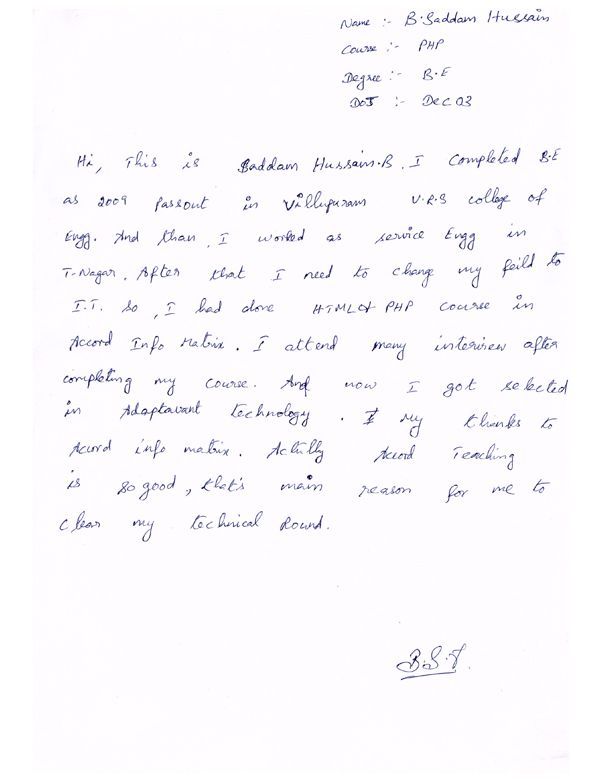 Name :- B.Saddam Hussain
Course :- PHP
Degree :- B.E
DOJ :- Dec 03
Hi, This is Saddam Hussain.B. I Completed B.E
as 2009 Passout in Villupuram V.R.S college of
Engg. And than, I worked as service Engg in
T-Nagar. After that I need to change my feild to
I.T. So, I had done HTML & PHP course in
Accord Info Matrix. I attend many interview after
completing my course. And now I got selected
in Adaptavant technology. I My thanks to
Accord info matrix. Actully Accord Teaching
is so good, that's main reason for me to
clear my technical Round.